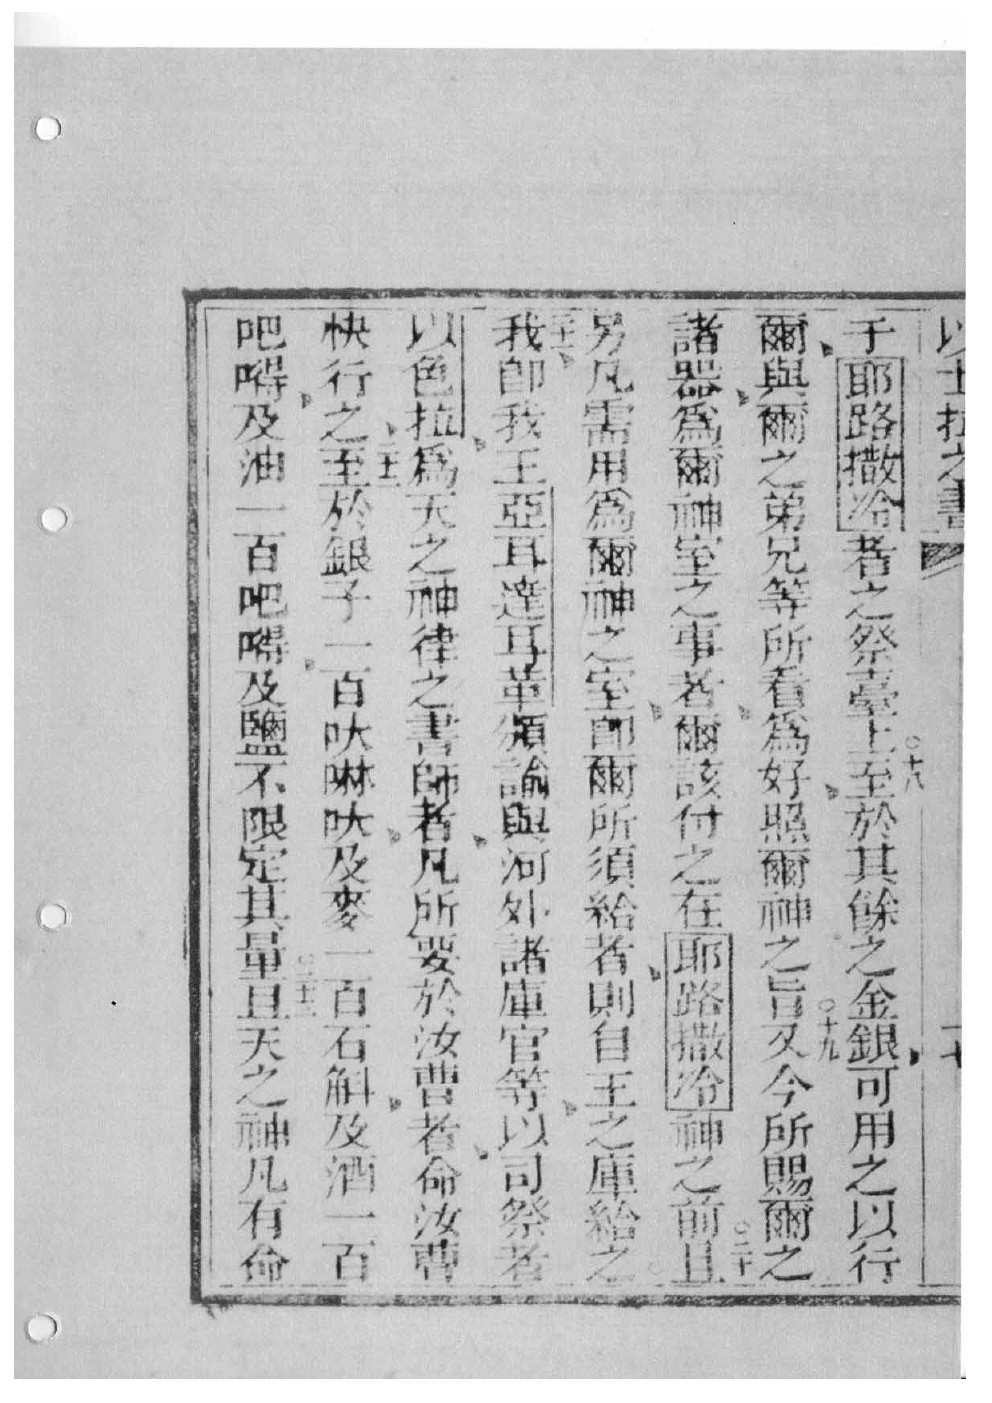 以士拉之書
于耶路撒冷者之祭臺上○十八至於其餘之金銀可用之以行
爾與爾之弟兄等所看為好照爾神之旨○十九又今所賜爾之
諸器為爾神室之事者爾該付之在耶路撒冷神之前○二十且
另凡需用為爾神之室卽爾所須給者則自王之庫給之
二十一我卽我王亞耳達耳革頒諭與河外諸庫官等以司祭者
以色拉為天之神律之書師者凡所要於汝曹者命汝曹
快行之二十二至於銀子一百吠啉吠及麥一百石斛及酒一百
吧㗶及油一百吧㗶及鹽不限定其量○二十三且天之神凡有命